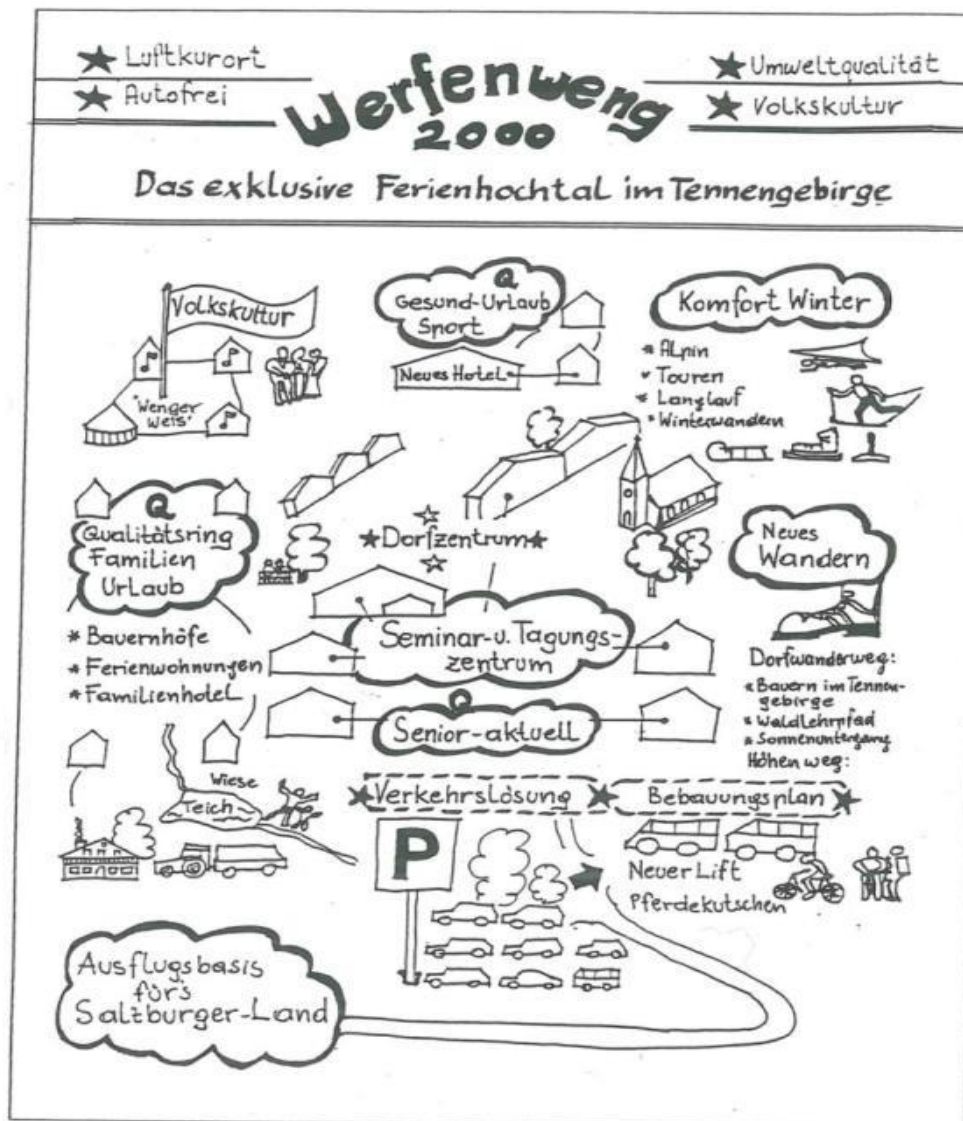 ★ Luftkurort
★ Autofrei
Werfenweng
2000
★ Umweltqualität
★ Volkskultur
Das exklusive Ferienhochtal im Tennengebirge
Volkskultur
"Wenger
Weis"
Q
Gesund-Urlaub
Sport
Neues Hotel
Komfort Winter
* Alpin
* Touren
* Langlauf
* Winterwandern
Q
Qualitätsring
Familien
Urlaub
* Bauernhöfe
* Ferienwohnungen
* Familienhotel
★Dorfzentrum★
Seminar-u. Tagungs-
zentrum
Q
Senior-aktuell
Neues
Wandern
Dorfwanderweg:
* Bauern im Tennen-
gebirge
* Waldlehrpfad
* Sonnenuntergang
Höhenweg:
Wiese
Teich
★Verkehrslösung★
Bebauungsplan★
P
Neuer Lift
Pferdekutschen
Ausflugsbasis
für's
Salzburger-Land